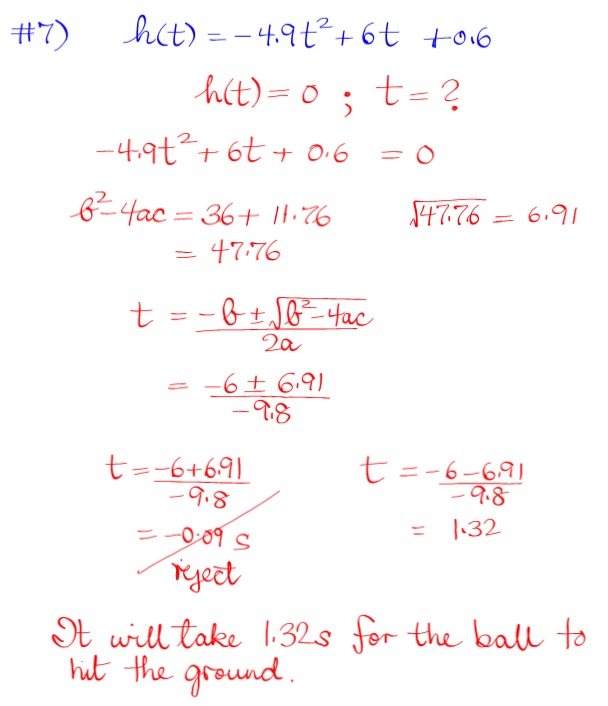 #7) h(t) = -4.9t² + 6t + 0.6
h(t) = 0 ; t = ?
-4.9t² + 6t + 0.6 = 0
b²-4ac = 36 + 11.76 √47.76 = 6.91
= 47.76
t = -b ± √b²-4ac
2a
= -6 ± 6.91
-9.8
t = -6+6.91
-9.8
= -0.09 s
reject
t = -6-6.91
-9.8
= 1.32
It will take 1.32s for the ball to
hit the ground.